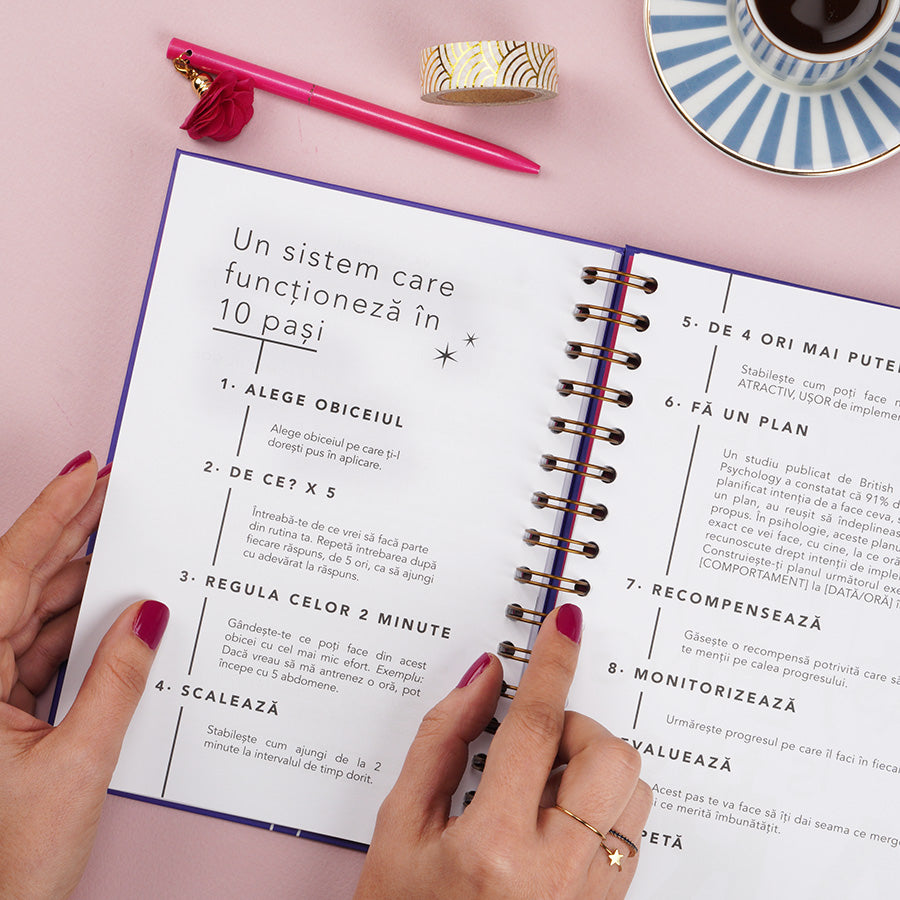 Un sistem care
funcționeză în
10 pași
1. ALEGE OBICEIUL
Alege obiceiul pe care ți-l
dorești pus în aplicare.
2. DE CE? X 5
Întreabă-te de ce vrei să facă parte
din rutina ta. Repetă întrebarea după
fiecare răspuns, de 5 ori, ca să ajungi
cu adevărat la răspuns.
3. REGULA CELOR 2 MINUTE
Gândește-te ce poți face din acest
obicei cu cel mai mic efort. Exemplu:
Dacă vreau să mă antrenez o oră, pot
începe cu 5 abdomene.
4. SCALEAZĂ
Stabilește cum ajungi de la 2
minute la intervalul de timp dorit.
5. DE 4 ORI MAI
Stabilește cum poți face
ATRACTIV, UȘOR de
6. FĂ UN PLAN
Un studiu publicat de British
Psychology a constatat că 91%
planificat intenția de a face ceva,
un plan, au reușit să
propus. În psihologie, aceste
exact ce vei face, cu cine, la ce
recunoscute drept intenții de
Construiește-ți planul următorul
[COMPORTAMENT] la [DATĂ/ORĂ]
7. RECOMPENSEAZĂ
Găsește o recompensă potrivită care
te menții pe calea progresului.
8. MONITORIZEAZĂ
Urmărește progresul pe care îl faci în
EVALUEAZĂ
Acest pas te va face să îți dai seama ce
ce merită îmbunătățit.